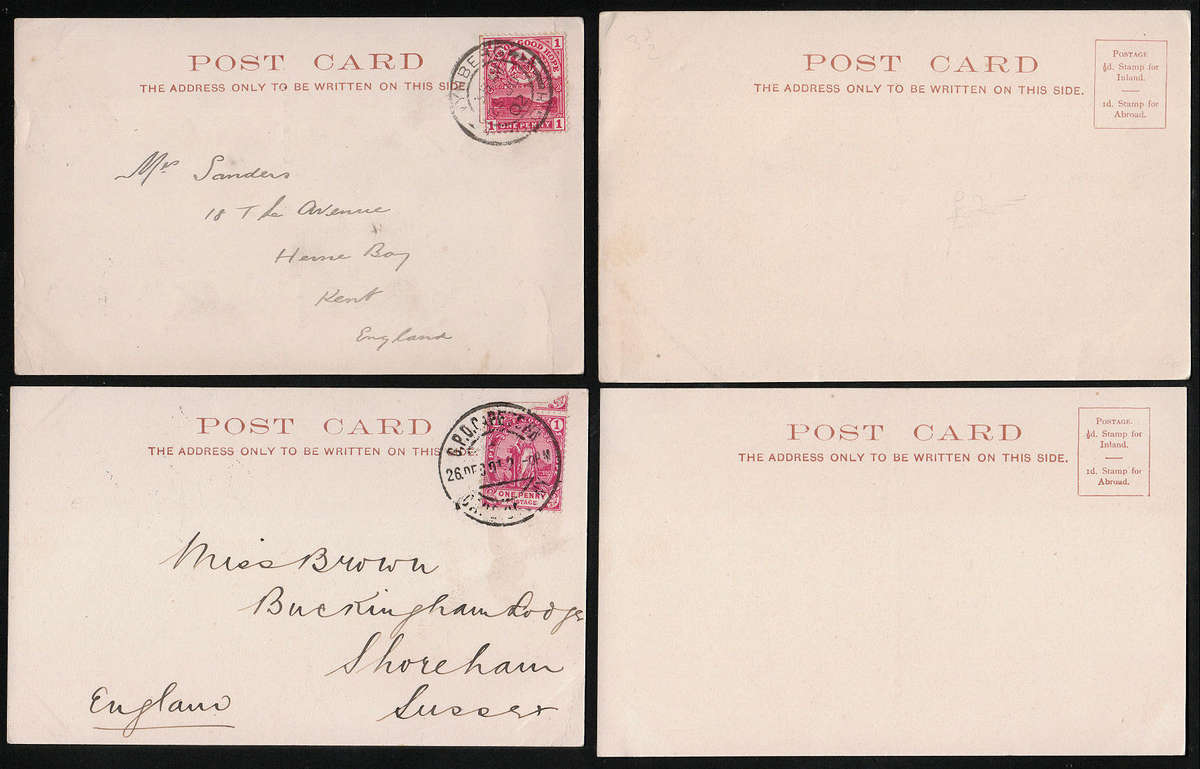 POST CARD
THE ADDRESS ONLY TO BE WRITTEN ON THIS SIDE
GOOD HOPE
1 1
1 ONE PENNY 1
Mrs Sanders
18 The Avenue
Herne Bay
Kent
England
POST CARD
THE ADDRESS ONLY TO BE WRITTEN ON THIS SIDE.
POSTAGE.
½d. Stamp for
Inland.
1d. Stamp for
Abroad.
POST CARD
THE ADDRESS ONLY TO BE WRITTEN ON THIS
G.P.O.
1
ONE PENNY
Miss Brown
Buckingham Lodge
Shoreham
Sussex
England
POST CARD
THE ADDRESS ONLY TO BE WRITTEN ON THIS SIDE.
POSTAGE.
½d. Stamp for
Inland.
1d. Stamp for
Abroad.